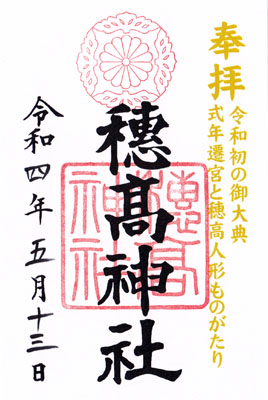 奉拝
令和初の御大典
式年遷宮と穂高人形ものがたり
穂髙神社
穂高神社
令和四年五月十三日